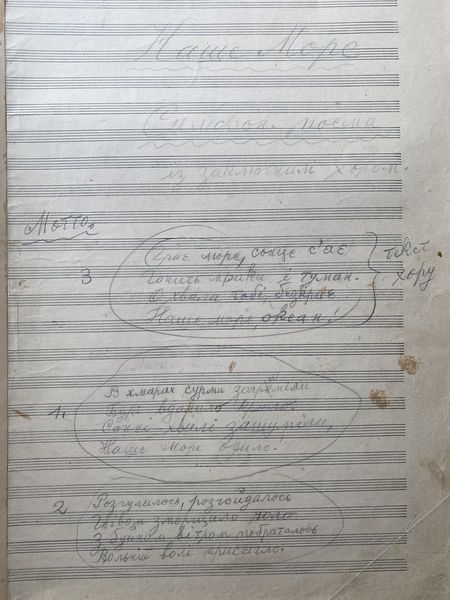 Наше Море
Симфон. поема
із заключним хором.
Мотто:
3
Грає море, сонце сяє
Гонись мраки й туман.
О хвала тобі, безкрає
Наше море, океан!
текст
хору
1.
В хмарах сурми загреміли
Бурі вдарило крило.
Сонні хвилі зашуміли,
Наше Море ожило!
2
Розгулялось, розгойдалось
Гнівом зморщило чоло
З буйним вітром побраталось
Вольній волі присягло.